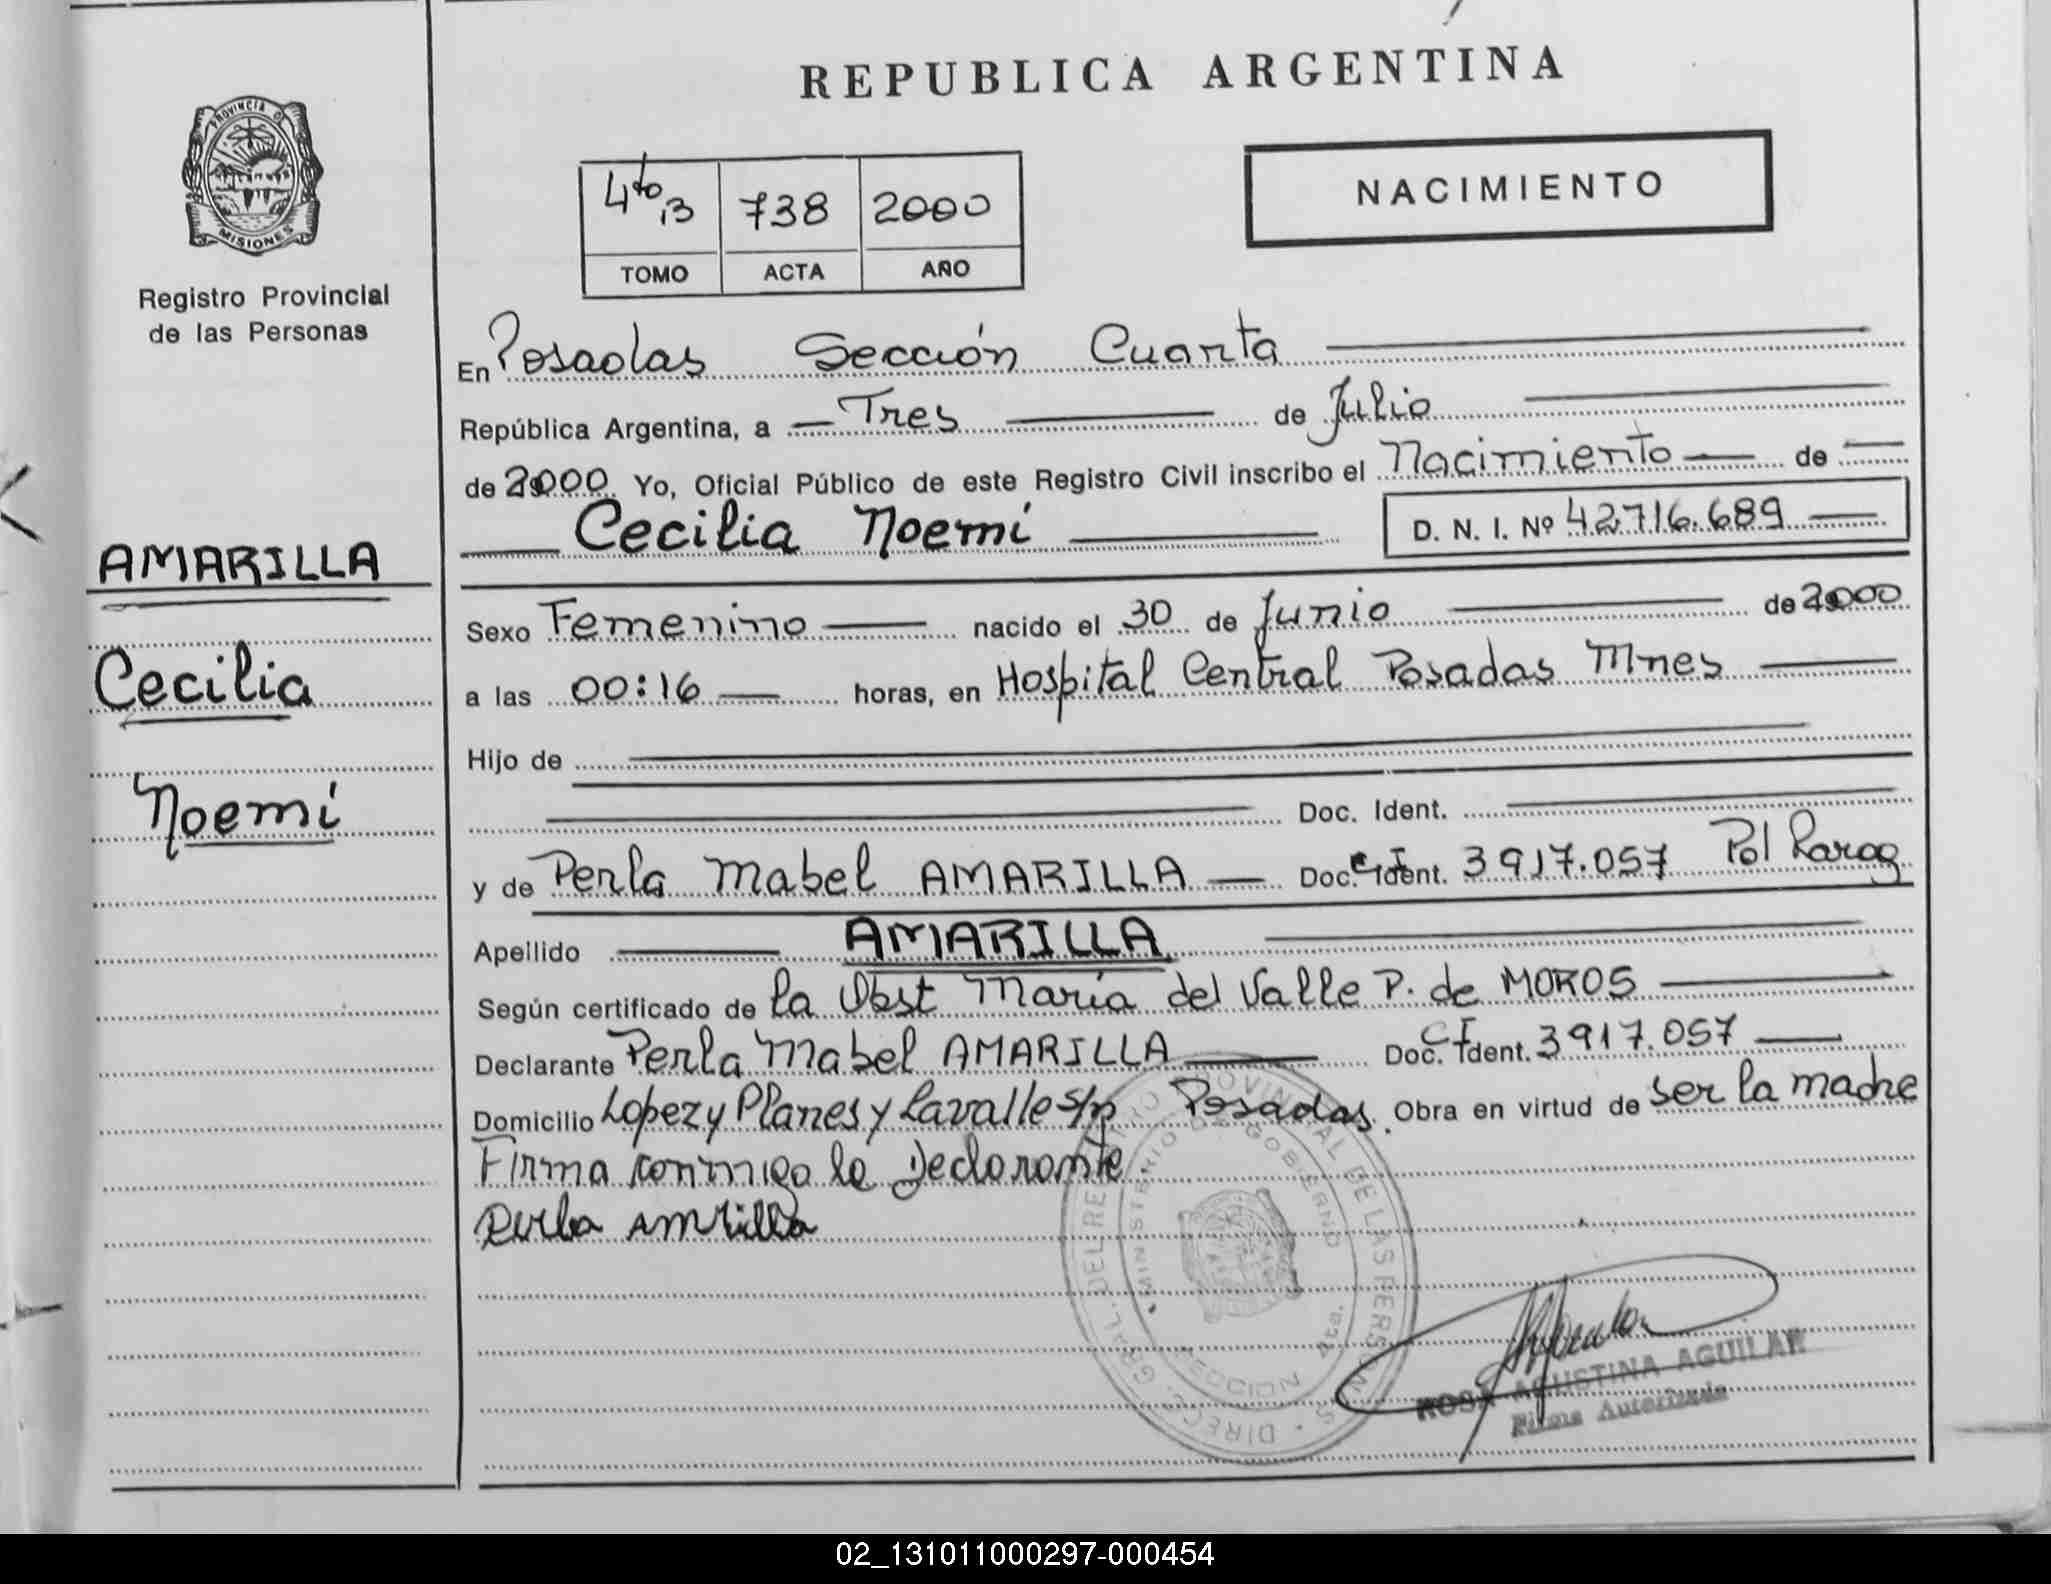 REPUBLICA ARGENTINA
PROVINCIA DE
MISIONES
Registro Provincial
de las Personas
4to 13 738 2000
TOMO ACTA AÑO
NACIMIENTO
En Posadas Sección Cuarta
República Argentina, a Tres de Julio
de 2000 Yo, Oficial Público de este Registro Civil inscribo el Nacimiento de
Cecilia Noemí D. N. I. Nº 42.716.689
AMARILLA
Cecilia
Noemí
Sexo Femenino nacido el 30 de Junio de 2000
a las 00:16 horas, en Hospital Central Posadas Mnes
Hijo de
Doc. Ident.
y de Perla Mabel AMARILLA Doc. Ident. CI 3917.057 Pol
Apellido AMARILLA
Según certificado de la Obst María del Valle P. de MOROS
Declarante Perla Mabel AMARILLA Doc. Ident. CI 3917.057
Domicilio Lopez y Planes y Lavalle s/n Posadas. Obra en virtud de ser la madre
Firma conmigo la Declarante.
Perla Amrilla
DIRECC. GRAL. DEL REGISTRO PROVINCIAL DE LAS PERSONAS
MINISTERIO DE GOBIERNO
ROSA AGUSTINA AGUILAR
Firma Autorizada
02_131011000297-000454